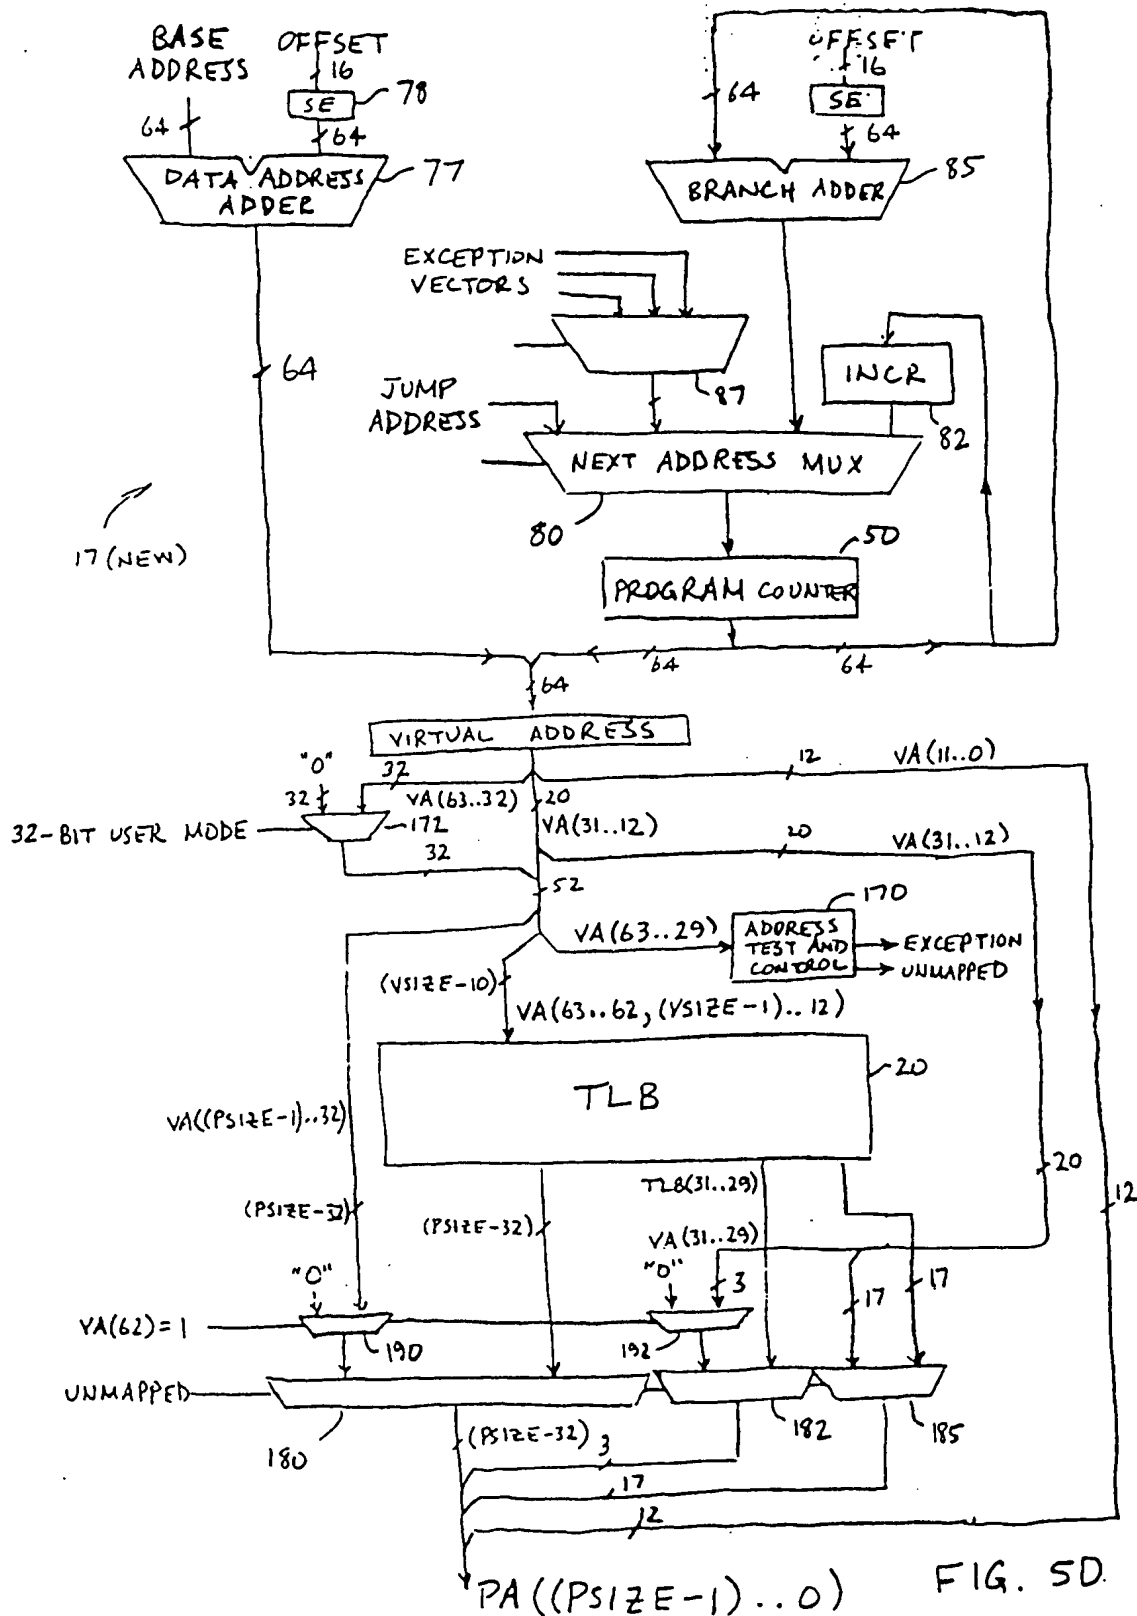 BASE
ADDRESS
OFFSET
16
SE
78
64
64
DATA ADDRESS
ADDER
77
OFFSET
16
64
SE
64
BRANCH ADDER
85
EXCEPTION
VECTORS
64
87
INCR
82
JUMP
ADDRESS
NEXT ADDRESS MUX
80
50
17 (NEW)
PROGRAM COUNTER
64
64
64
VIRTUAL ADDRESS
"0"
32
32
VA(63..32)
20
VA(31..12)
12
VA(11..0)
32-BIT USER MODE
172
32
20
VA(31..12)
52
170
VA(63..29)
ADDRESS
TEST AND
CONTROL
EXCEPTION
UNMAPPED
(VSIZE-10)
VA(63..62, (VSIZE-1)..12)
TLB
20
VA((PSIZE-1)..32)
20
12
(PSIZE-32)
(PSIZE-32)
TLB(31..29)
VA(31..29)
"0"
"0"
3
17
17
VA(62)=1
190
192
UNMAPPED
180
182
185
(PSIZE-32)
3
17
12
PA((PSIZE-1)..0)
FIG. 5D